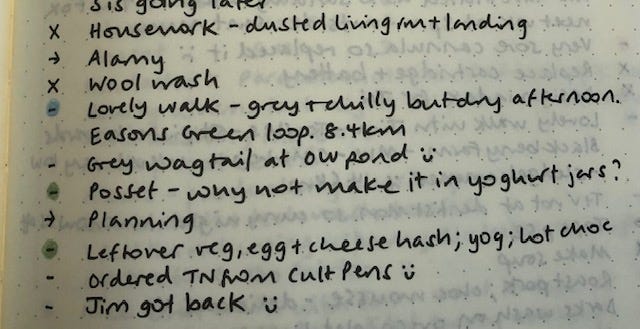 sis going later
x Housework - dusted living rm + landing
→ Alamy
x Wool wash
- Lovely walk - grey + chilly but dry afternoon.
Easons Green loop. 8.4km
- Grey wagtail at OW pond ü
- Posset - why not make it in yoghurt jars?
→ Planning
- Leftover veg, egg + cheese hash; yog; hot choc
- ordered TN from Cult Pens ü
- Jim got back ü